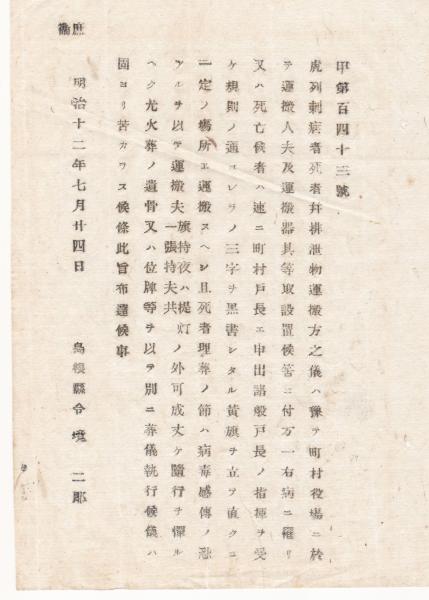 甲第百四十三號
虎列剌病者死者幷排泄物運搬方之儀ハ豫テ町村役場ニ於
テ運搬人夫及運搬器具等取設置候筈ニ付万一右病ニ罹リ
又ハ死亡候者ハ速ニ町村戸長エ申出諸般戸長ノ指揮ヲ受
ケ規則ノ通コレラノ三字ヲ黑書シタル黃旗ヲ立テ直クニ
一定ノ塲所エ運搬スヘシ且死者埋葬ノ節ハ病毒感傳ノ恐
アルヲ以テ運搬夫旗持夜ハ提灯一張持夫共ノ外可成丈ケ隨行ヲ憚ル
ヘク尤火葬ノ遺骨又ハ位牌等ヲ以テ別ニ葬儀執行候儀ハ
固ヨリ苦カラス候條此旨布達候事
明治十二年七月廿四日 島根縣令境二郎
庶衞